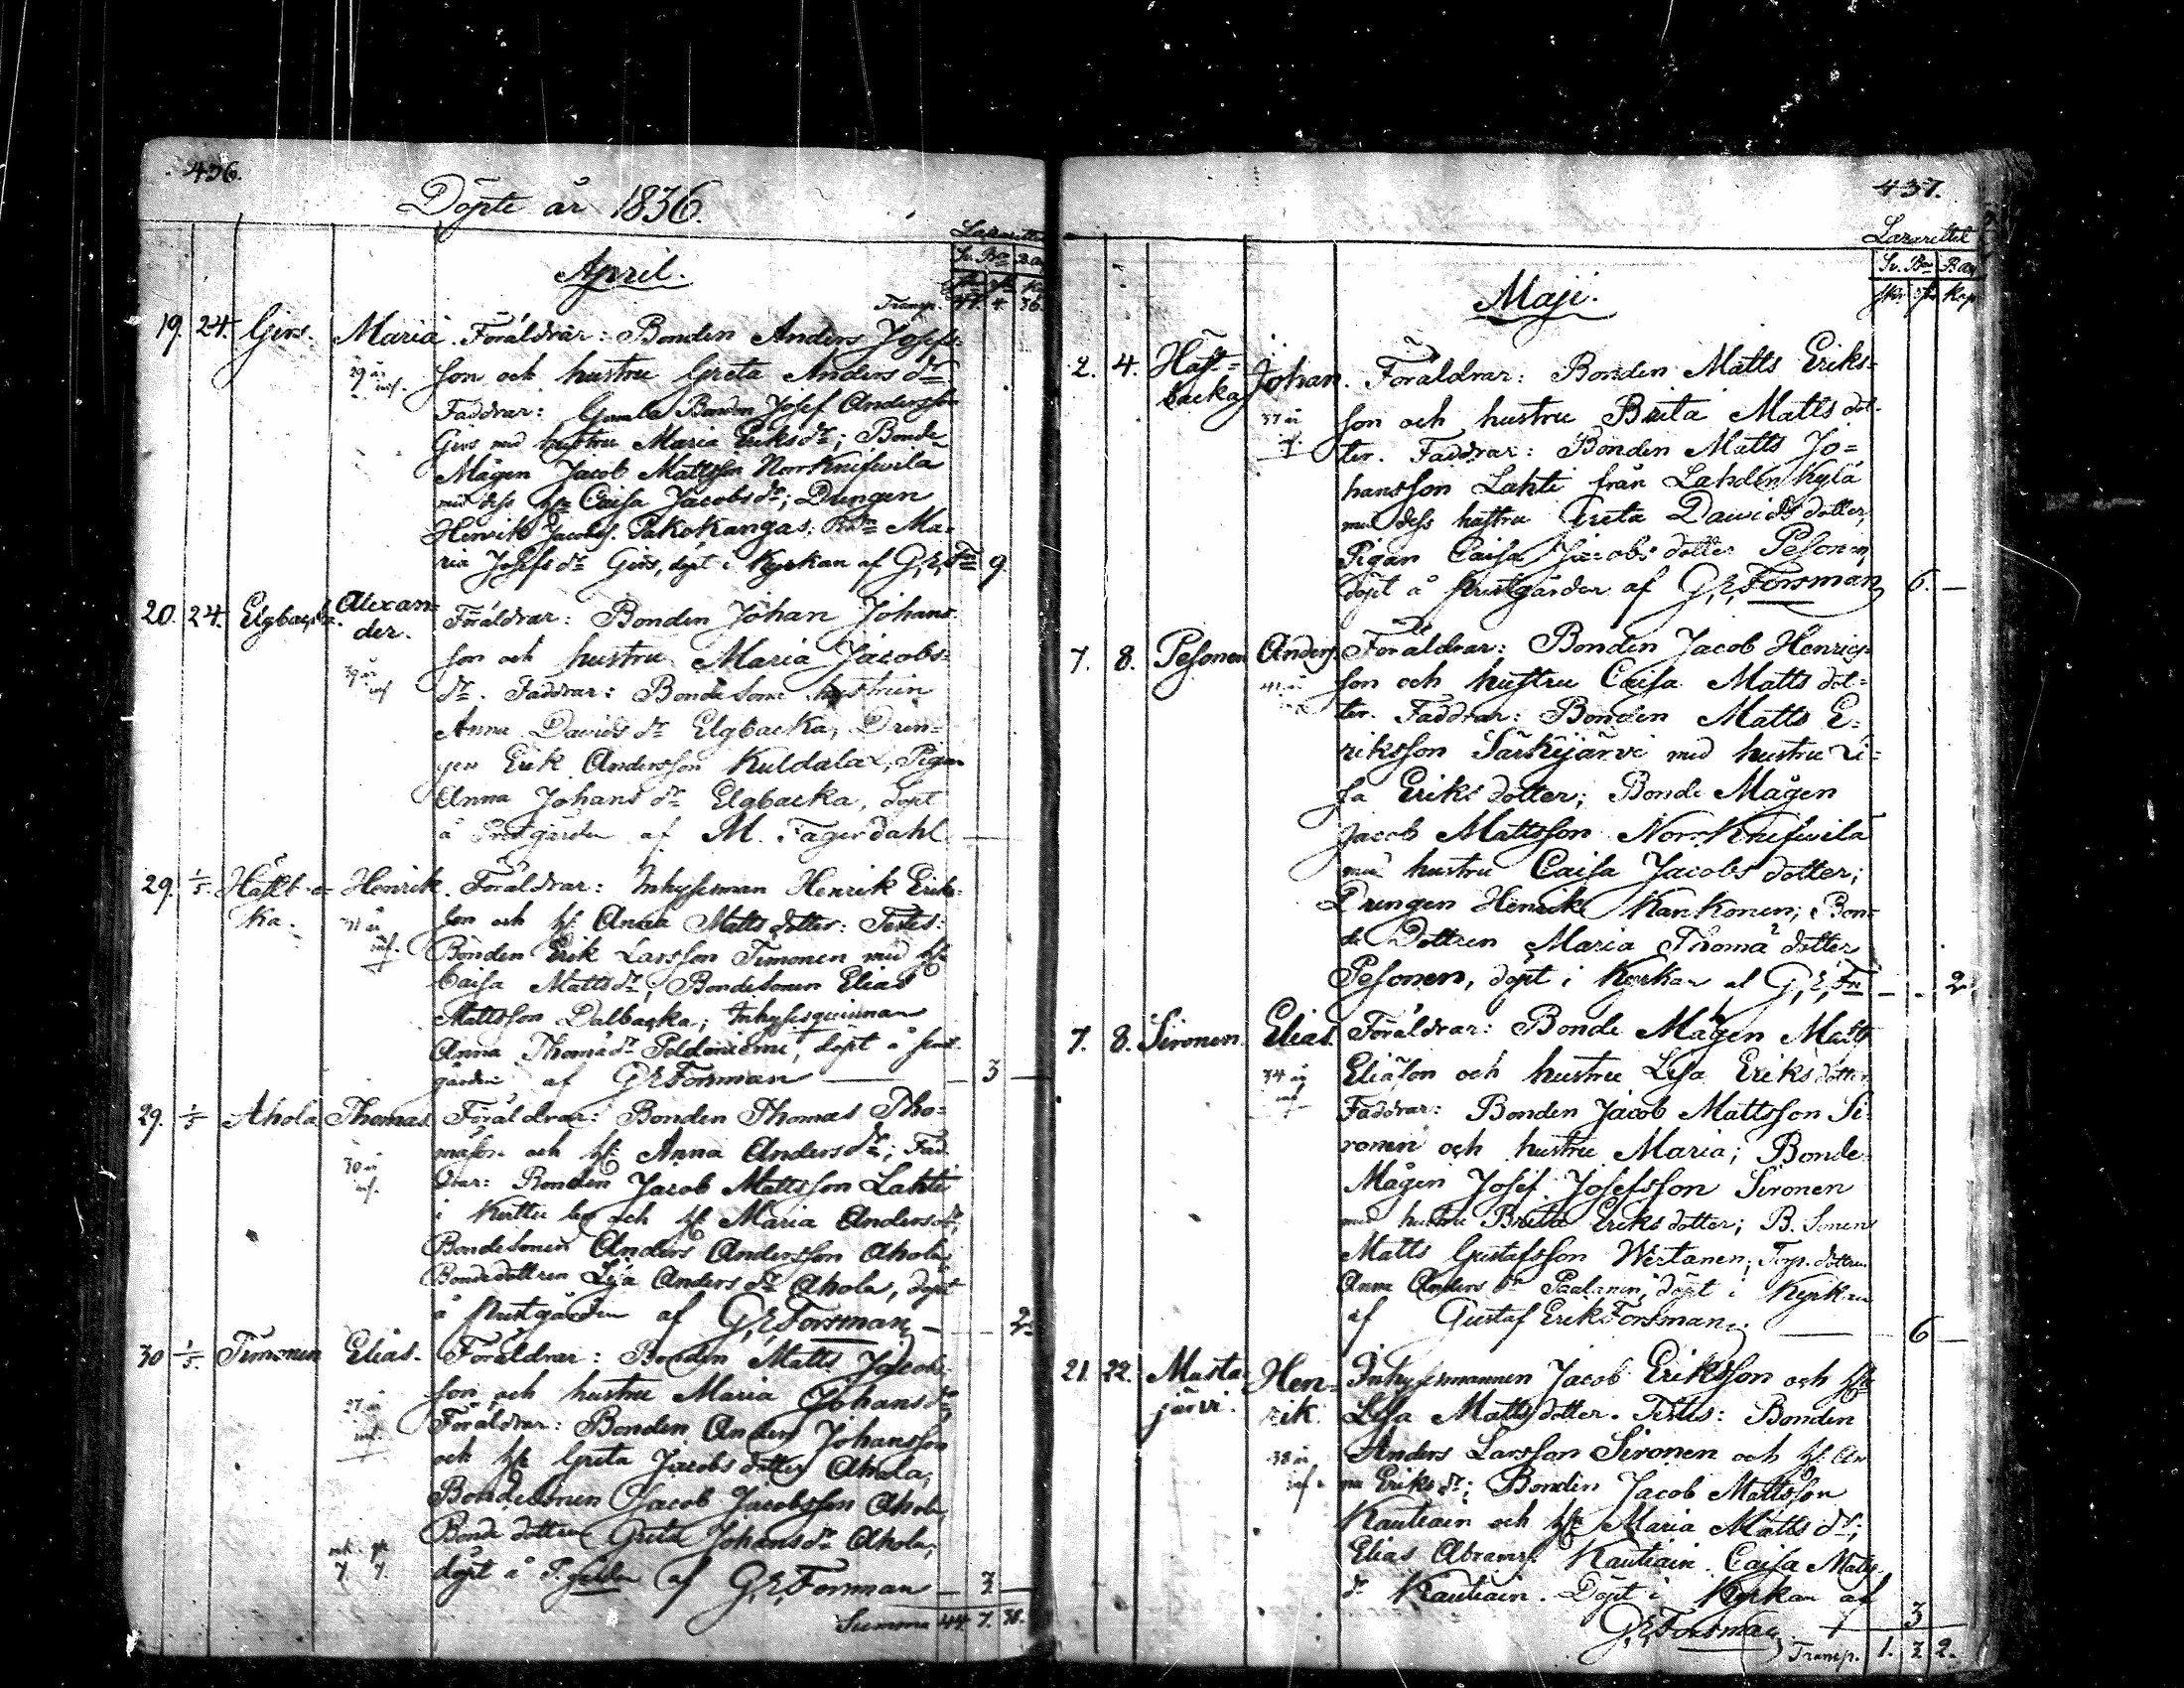 436.
Döpte år 1836.
Lazarettet
Sr. Bco B.A.
April.
Transp. 44. 4. 36.
19. 24. Girs. Maria. Föräldrar: Bonden Anders Josefs-
29 år son och hustru Greta Anders dr
inf. Faddrar: Gamla Bonden Josef Andersson
Girs med hustru Maria Eriks dr; Bonde
Mågen Jacob Mattsson Norr Knifwilä
med dess h. Caisa Jacobs dr; Drengen
Henrik Jacobs. Pakokangas,
Maria Josefs dr Girs, döpt i Kyrkan af G,E,Fn 9
20. 24. Elgbacka. Alexander. Föräldrar: Bonden Johan Johans-
39 år son och hustru Maria Jacobs
inf dr. Faddrar: Bonde Sone hustrun
Anna Davids dr Elgbacka, Dren-
gen Erik Andersson Kuldala, Pigan
Anna Johans dr Elgbacka, döpt
å Prestgården af M. Fagerdahl —
29. 1/5 Häst-
ka. Henrik. Föräldrar: Inhyseman Henrik Eriks-
31 år son och h. Anna Matts dotter: Testes:
inf. Bonden Erik Larsson Timonen med h.
Caisa Matts dr; Bondesonen Elias
Mattsson Dalbacka; Inhysesquinnan
Anna Thomä dr, döpt å prest-
gården af G E Forsman — — 3 —
29. 1/5 Ahola Thomas Föräldrar: Bonden Thomas Tho-
30 år mässon och h. Anna Anders dr; Fad-
inf. drar: Bonden Jacob Mattsson Lahti
i Kerttu by och h. Maria Anders dr,
Bondesonen Anders Andersson Ahola
Bondedottren Lisa Anders dr Ahola, döpt
å Prestgården af G,E,Forsman, — — 2
30 1/5. Timonen Elias. Föräldrar: Bonden Matts Jacobs-
27 år son och hustru Maria Johans dr,
inf. Föräldrar: Bonden Anders Johansson
och h. Greta Jacobs dotter Ahola,
Bondesonen Jacob Jacobsson Ahola
Bonde dottren Greta Johans dr Ahola,
7 7. döpt å P.gården af G,E,Forsman — 3 —
Summa 44 7. 38.
437.
Lazarettet
Sr. Bco B.A.
Skr. Kop
Maji.
2. 4. Häst-
backa Johan. Föräldrar: Bonden Matts Eriks-
37 år son och hustru Brita Matts dot-
ter. Faddrar: Bonden Matts Jo-
hansson Lahti från Lahden Kylä
med dess hustru Greta Davids dotter,
Pigan Caisa Jacobs dotter Pesonen,
döpt å prestgården af G,E,Forsman 6. —
7. 8. Pesonen Anders. Föräldrar: Bonden Jacob Henrics-
41 år son och hustru Caisa Matts dot-
ter. Faddrar: Bonden Matts E-
riksson Särkijärvi med hustru Li-
sa Eriks dotter; Bonde Mågen
Jacob Mattsson Norr Knifwilä
med hustru Caisa Jacobs dotter;
Drengen Henrik Kankonen; Bon-
de Dottren Maria Thomä dotter
Pesonen, döpt i Kyrkan af G,E,Fn — - 2
7. 8. Sironen. Elias. Föräldrar: Bonde Mågen Matts
34 år Eliäson och hustru Lisa Eriks dotter
inf Faddrar: Bonden Jacob Mattsson Si-
ronen och hustru Maria; Bonde
Mågen Josef Josefsson Sironen
med hustru Brita Eriks dotter; B. Sonen
Matts Gustafsson Wertanen; Torp. dottren
Anna Anders dr Paalanen, döpt i Kyrkan
af Gustaf Erik Forsman. — 6 —
21. 22. Musta-
järvi. Hen-
rik. Inhysesmannen Jacob Eriksson och h.
Lisa Matts dotter. Testes: Bonden
38 år Anders Larsson Sironen och h. An-
inf. na Eriks dr; Bonden Jacob Mattsson
Kautiain och h. Maria Matts dr;
Elias Abrams. Kautiain. Caisa Matts
dr Kautiain. Döpt i Kyrkan af
G,E,Forsman. 3
Transp. 1. 3 2.